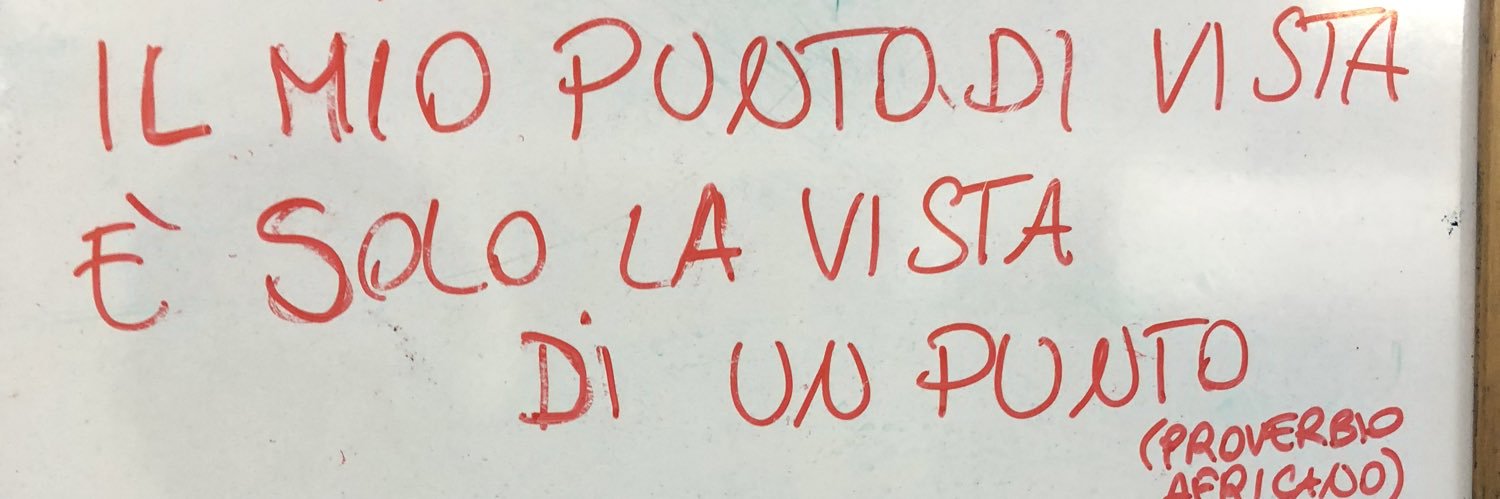 IL MIO PUNTO DI VISTA
È SOLO LA VISTA
Di UN PUNTO
(PROVERBIO
AFRICANO)